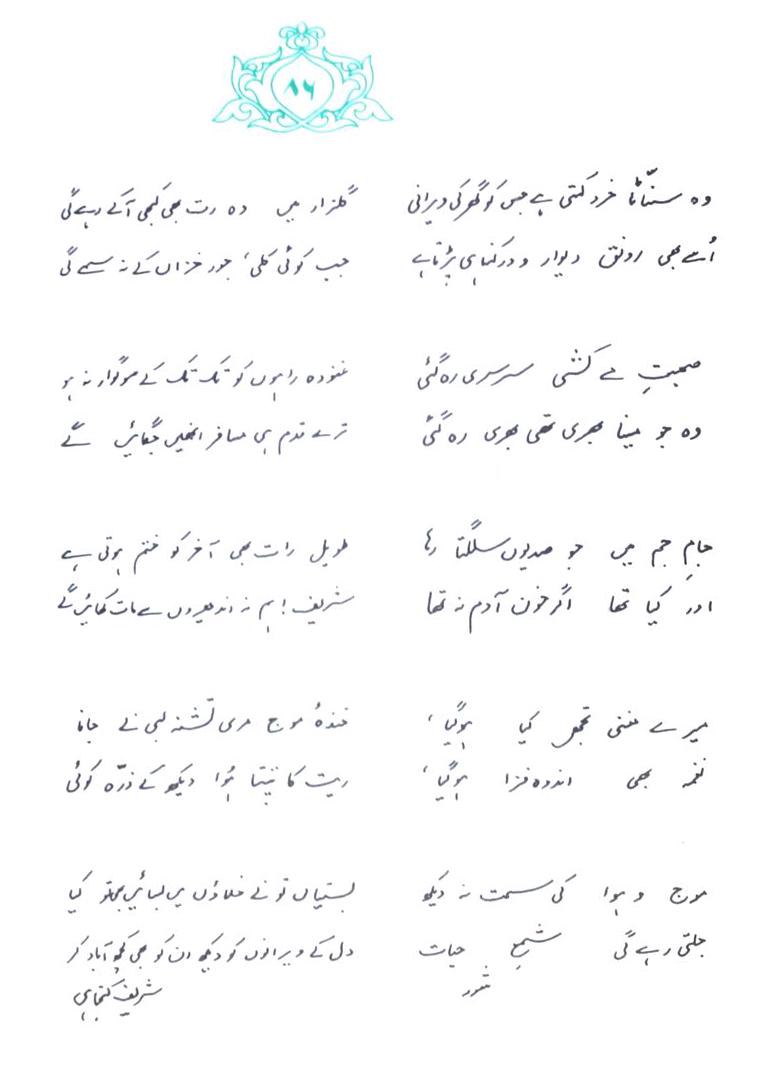 ۸۶
وہ سنّاٹا خرد کہتی ہے جس کو گھر کی ویرانی
اُسے بھی رونق دیوار و در کہنا ہی پڑتا ہے
گلزار میں وہ رت بھی کبھی آکے رہے گی
جب کوئی کلی، جور خزاں کے نہ سہے گی
صحبتِ مے کشی سرسری رہ گئی
وہ جو مینا بھری تھی بھری رہ گئی
غنودہ راہوں کو تک تک کے سوگوار نہ ہو
ترے قدم ہی مسافر انھیں جگائیں گے
جامِ جم میں جو صدیوں سلگتا رہا
اور کیا تھا اگر خون آدم نہ تھا
طویل رات بھی آخر کو ختم ہوتی ہے
شریف! ہم نہ اندھیروں سے مات کھائیں گے
میرے مغنی تجھے کیا ہوگیا،
نغمہ بھی اندوہ فزا ہوگیا،
خندۂ موج مری تشنہ لبی نے جانا
ریت کا تپتا ہُوا دیکھ کے ذرّہ کوئی
موج و ہوا کی سمت نہ دیکھ
جلتی رہے گی شمعِ حیات
بستیاں تو نے خلاؤں میں بسائیں بھی تو کیا
دل کے ویرانوں کو دیکھ ان کو بھی کچھ آباد کر
شریف کنجاہی